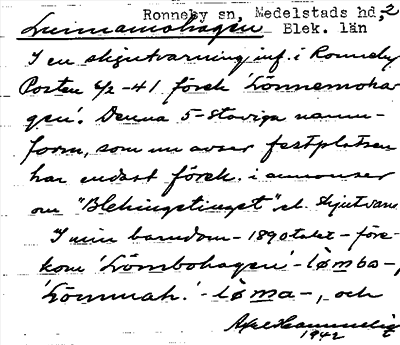 Ronneby sn, Medelstads hd, 2
Lunnamohagen Blek. län
I en skjutvarning inf. i Ronneby
Posten 6/2 -41 förek 'Lönnemoha-
gen'. Denna 5-staviga namn-
form, som nu avser festplatsen
har endast förek. i annonser
om "Blekingetinget" el. skjutvarn.
I min barndom - 1890talet - före-
kom 'Lömbohagen' - lømba-,
'Lömmah.' - løma-, och
Axel
1942